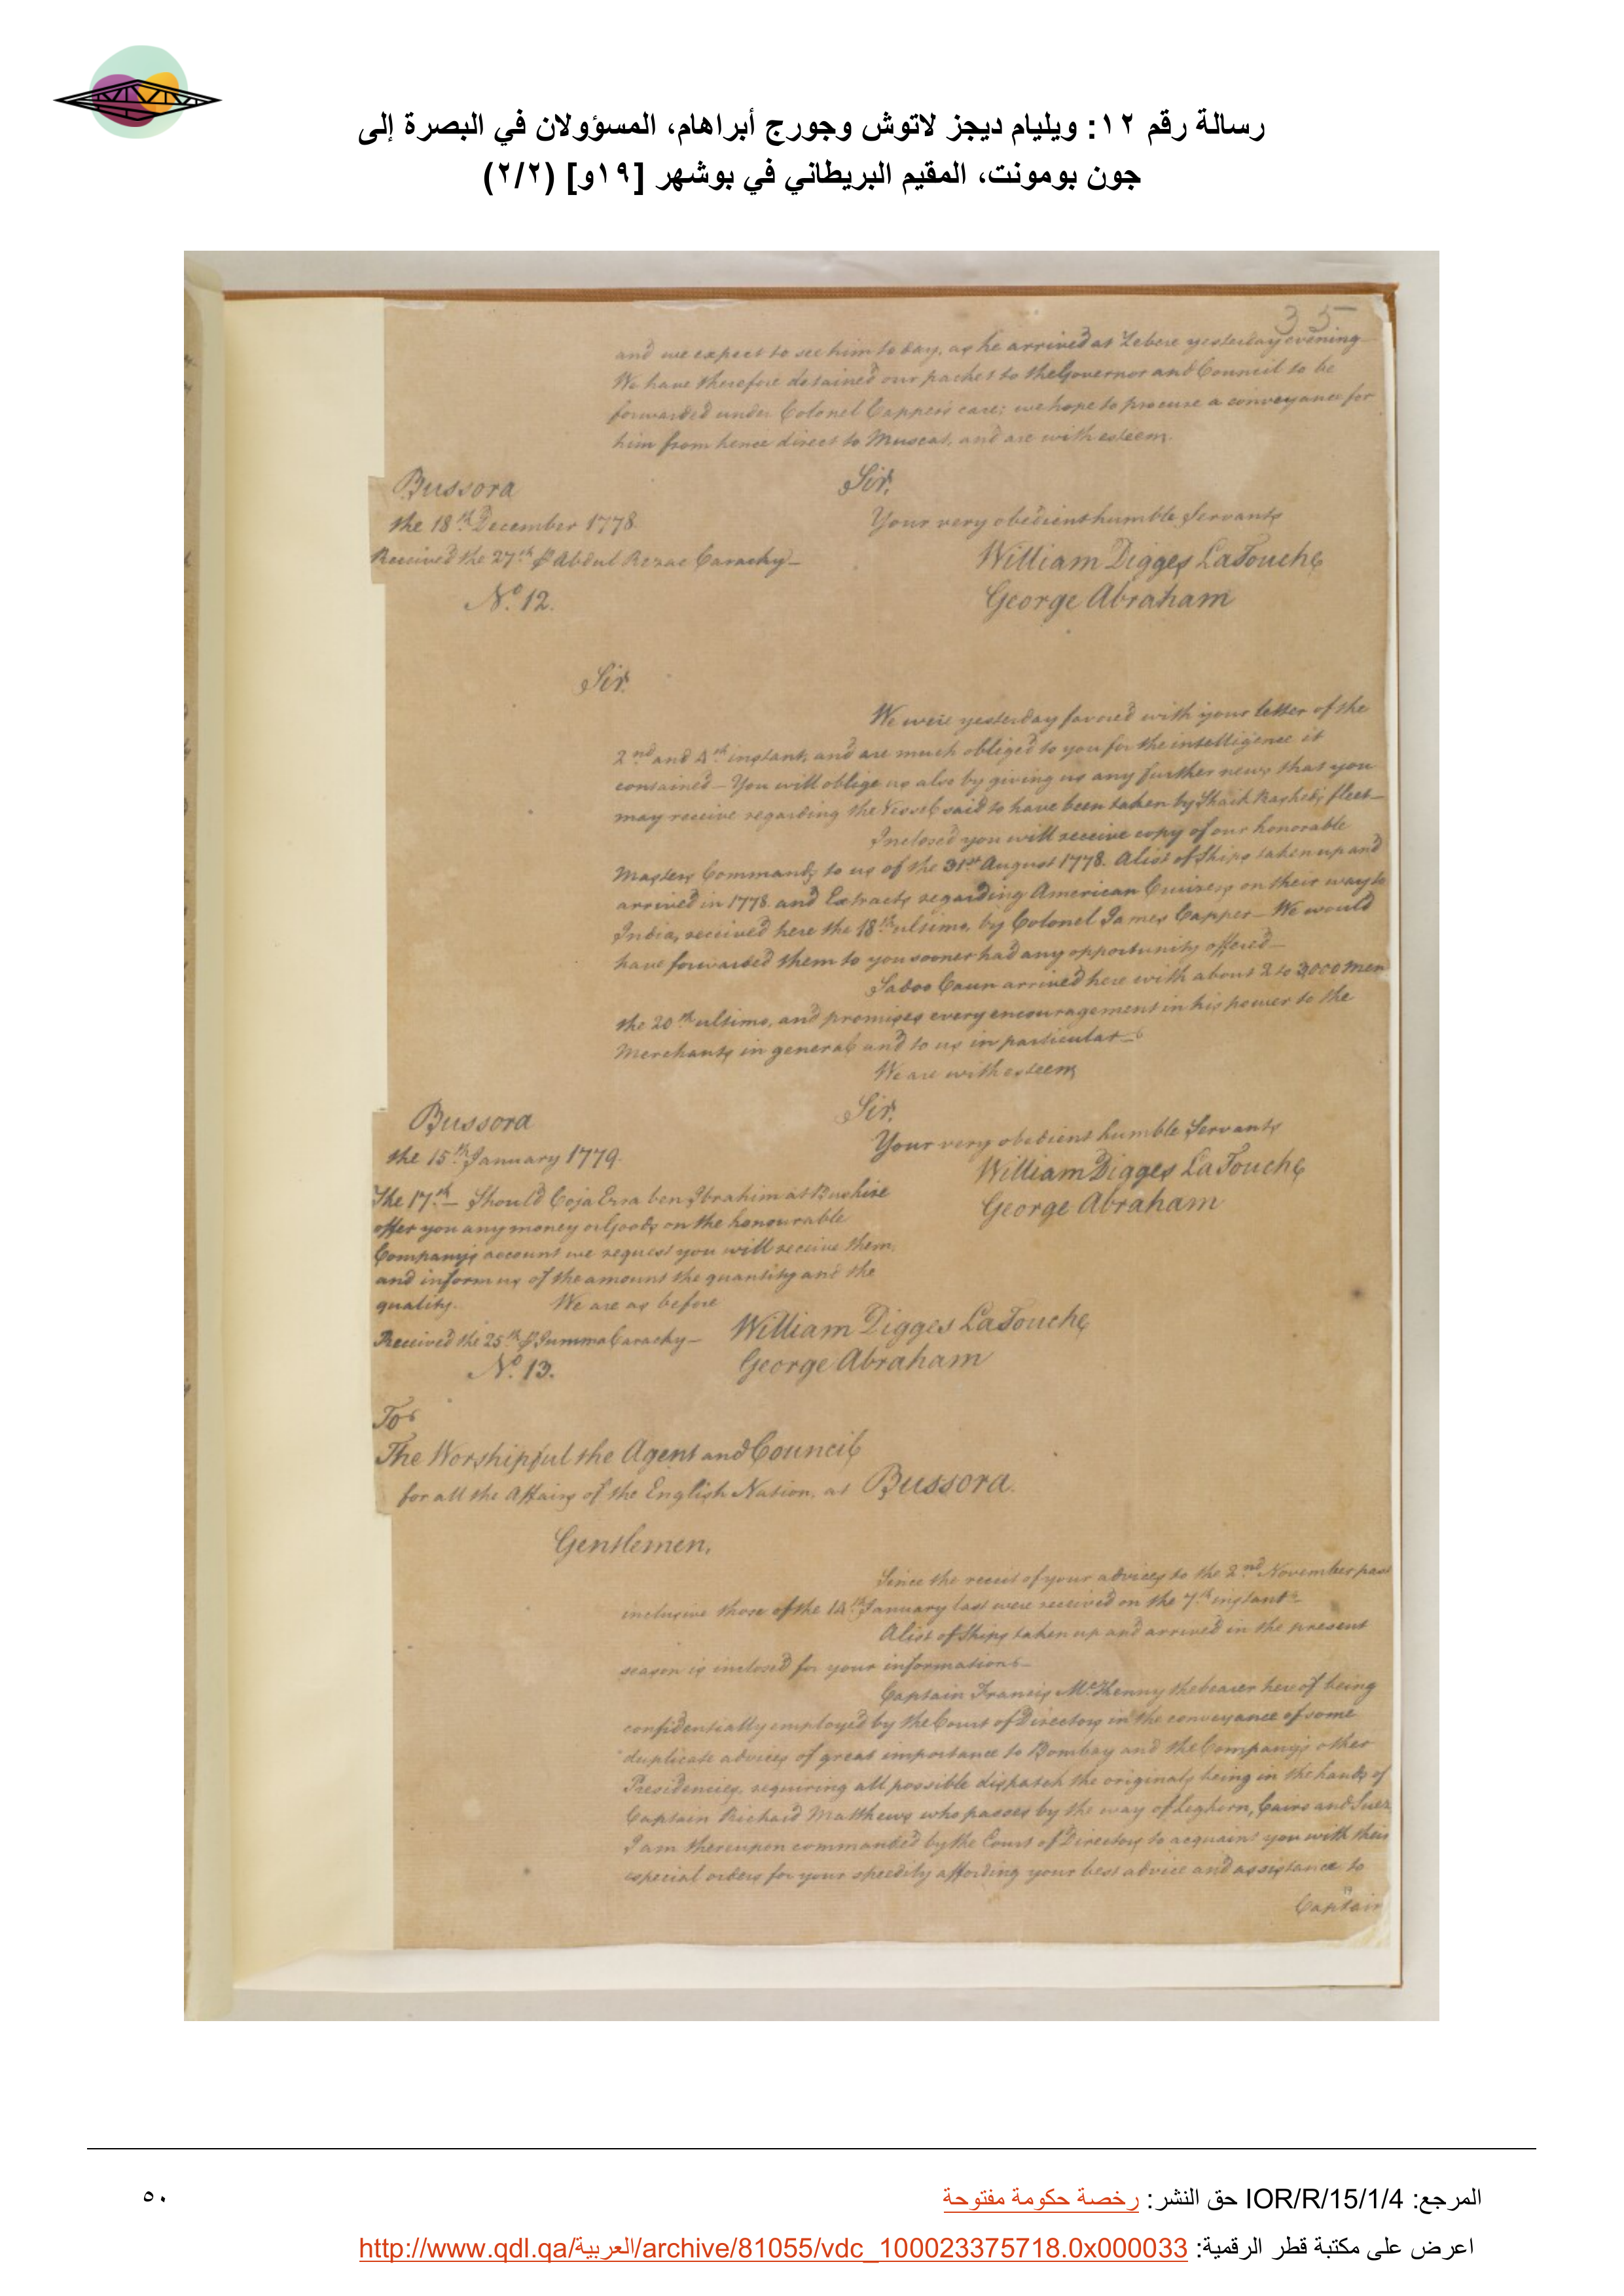 رسالة رقم ١٢: ويليام ديجز لاتوش وجورج أبراهام، المسؤولان في البصرة إلى
جون بومونت، المقيم البريطاني في بوشهر [١٩و] (٢/٢)
35
and we expect to see him to day, as he arrived at Zebere yesterday evening
We have therefore detained our packet to the Governor and Council to be
forwarded under Colonel Cappers care; we hope to procure a conveyance for
him from hence direct to Muscat, and are with esteem.
Bussora
Sir,
the 18th December 1778.
Your very obedient humble Servants
Received the 27th P Abdul Rezac Carachy
William Digges LaTouche
No. 12.
George Abraham
Sir.
We were yesterday favored with your letter of the
2nd and 4th instant, and are much obliged to you for the intelligence it
contained — You will oblige us also by giving us any further news that you
may receive regarding the Vessel said to have been taken by Shaik Rashed's fleet —
Inclosed you will receive copy of our honorable
Masters Commands to us of the 31st August 1778. A list of Ships taken up and
arrived in 1778. and Extracts regarding American Cruizers on their way to
India, received here the 18th ultimo, by Colonel James Capper — We would
have forwarded them to you sooner had any opportunity offered —
Sadoo Caun arrived here with about 2 to 3,000 Men
the 20th ultimo, and promises every encouragement in his power to the
Merchants in general and to us in particular —
We are with esteem
Bussora
Sir,
the 15th January 1779.
Your very obedient humble Servants
William Digges LaTouche
George Abraham
The 17th — Should Coja Ezra ben Ibrahim at Bushire
offer you any money or Goods on the honourable
Company's account we request you will receive them,
and inform us of the amount the quantity and the
quality. We are as before
Received the 25th P Jumma Carachy —
William Digges LaTouche
No. 13.
George Abraham
To
The Worshipful the Agent and Council
for all the Affairs of the English Nation, at Bussora.
Gentlemen,
Since the receit of your advices to the 2nd November past
inclusive those of the 14th January last were received on the 7th instant —
A list of Ships taken up and arrived in the present
season is inclosed for your information —
Captain Francis McKenny the bearer hereof being
confidentially employed by the Court of Directors in the conveyance of some
duplicate advices of great importance to Bombay and the Company's other
Presidencies, requiring all possible dispatch the originals being in the hands of
Captain Richard Matthews who passes by the way of Leghorn, Cairo and Suez,
I am thereupon commanded by the Court of Directors to acquaint you with their
especial orders for your speedily affording your best advice and assistance to
Captain
المرجع: IOR/R/15/1/4 حق النشر: رخصة حكومة مفتوحة
٥٠
اعرض على مكتبة قطر الرقمية: http://www.qdl.qa/العربية/archive/81055/vdc_100023375718.0x000033